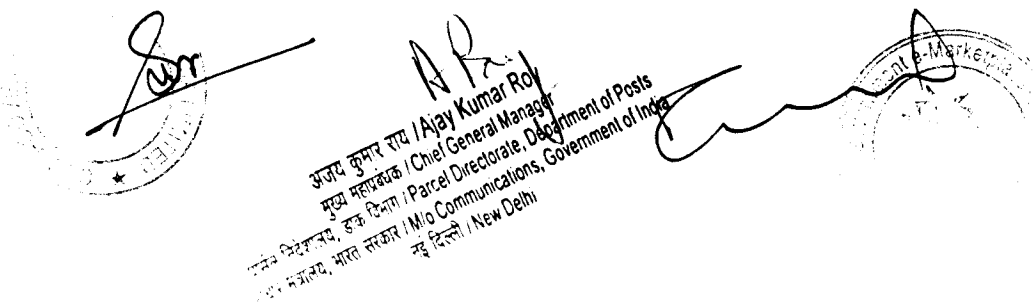 अजय कुमार राय / Ajay Kumar Roy
मुख्य महाप्रबंधक / Chief General Manager
निदेशालय, डाक विभाग / Parcel Directorate, Department of Posts
मंत्रालय, भारत सरकार / M/o Communications, Government of India
नई दिल्ली / New Delhi
e-Marketpla